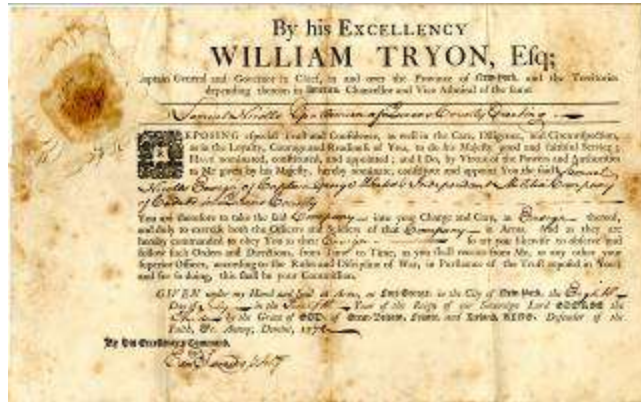 By his EXCELLENCY
WILLIAM TRYON, Eſq;
Captain General and Governor in Chief, in and over the Province of New-York, and the Territories
depending thereon in America, Chancellor and Vice Admiral of the ſame.
Samuel Nicolls Gentleman of Queens County Greeting
REPOSING eſpecial Truſt and Confidence, as well in the Care, Diligence, and Circumſpection,
as in the Loyalty, Courage and Readineſs of You, to do his Majeſty good and faithful Service;
Have nominated, conſtituted, and appointed; and I Do, by Virtue of the Powers and Authorities
to Me given by his Majeſty, hereby nominate, conſtitute and appoint You the ſaid Samuel
Nicolls Ensign of Captain George Independent Militia Company
of in Queens County
You are therefore to take the ſaid Company into your Charge and Care, as Ensign thereof,
and duly to exerciſe both the Officers and Soldiers of that Company in Arms. And as they are
hereby commanded to obey You as their Ensign ſo are you likewiſe to obſerve and
follow ſuch Orders and Directions, from Time to Time, as you ſhall receive from Me, or any other your
Superior Officer, according to the Rules and Diſcipline of War, in Purſuance of the Truſt repoſed in You;
and for ſo doing, this ſhall be your Commiſſion.
GIVEN under my Hand and Seal at Arms, at Fort-George, in the City of New-York, the Eighth
Day of July in the Year of the Reign of our Sovereign Lord GEORGE the
Third by the Grace of GOD, of Great-Britain, France, and Ireland, KING, Defender of the
Faith, &c. Annoq; Domini, 177
By His Excellency's Command,